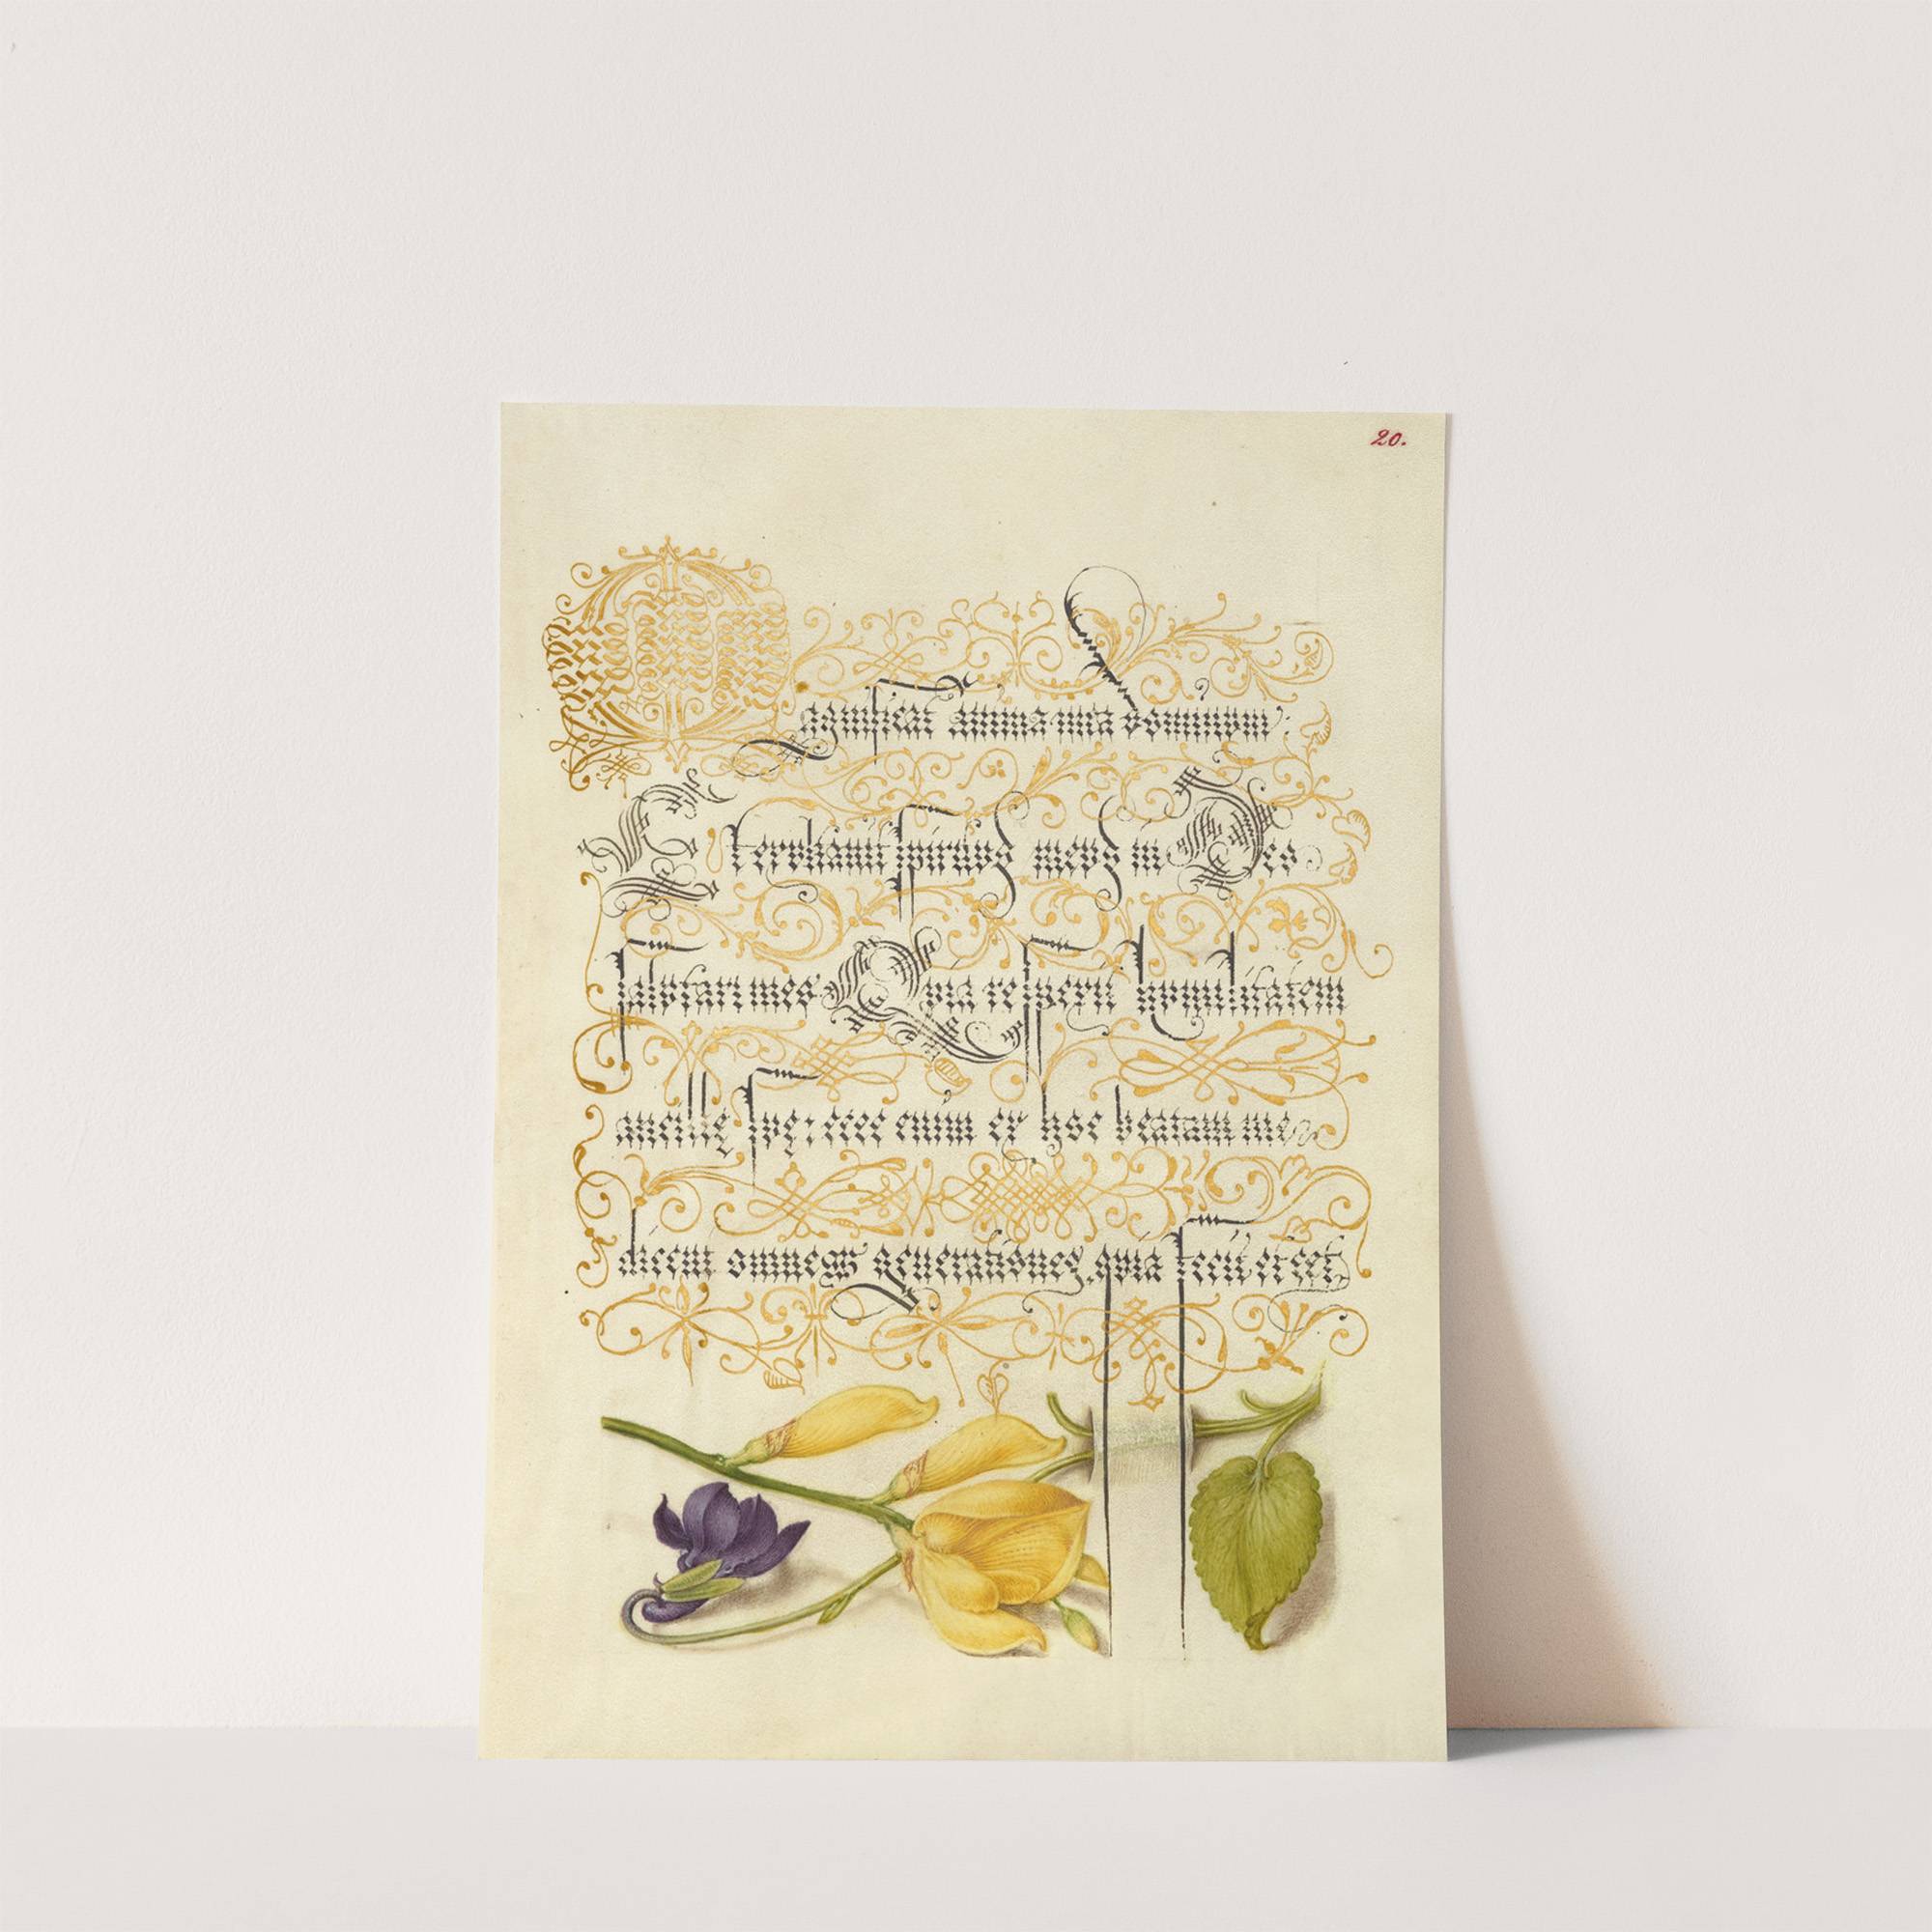 20.
Magnificat anima mea dominvm:
Et exvltavit spiritvs mevs in Deo
salvtari meo Qvia respexit hvmilitatem
ancillę svę: ecce enim ex hoc beatam me
dicent omnes generationes, qvia fecit ei et